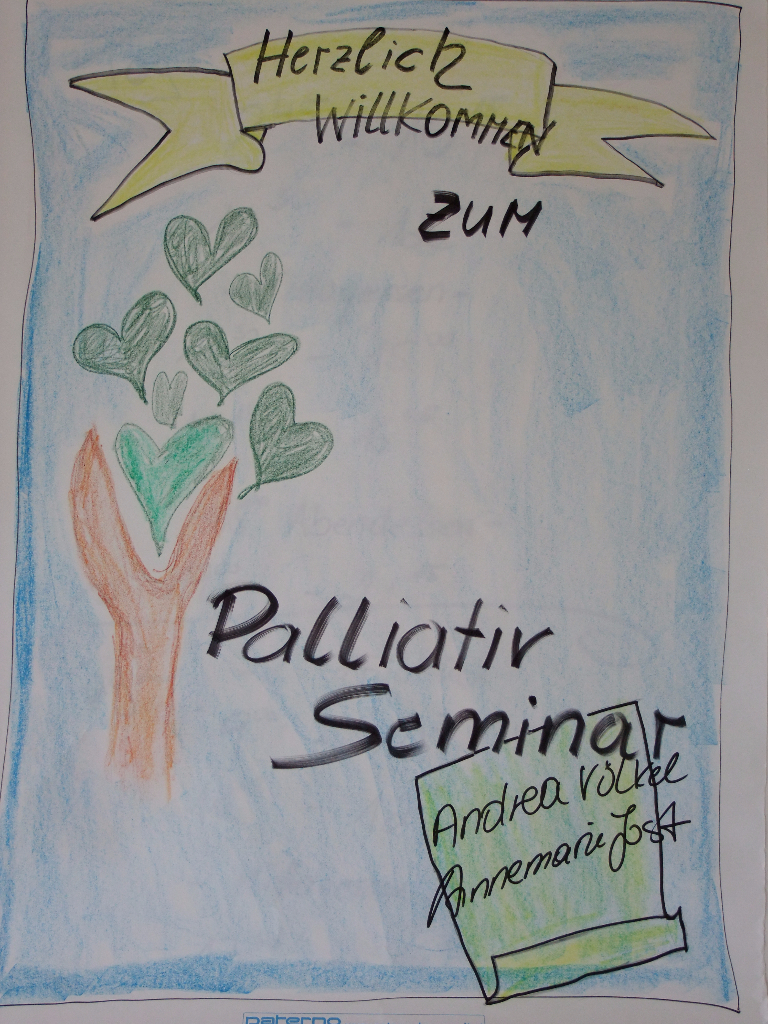 Herzlich
WILLKOMMEN
ZUM
Palliativ
Seminar
Andrea Völkel
Annemarie Jost
paterno